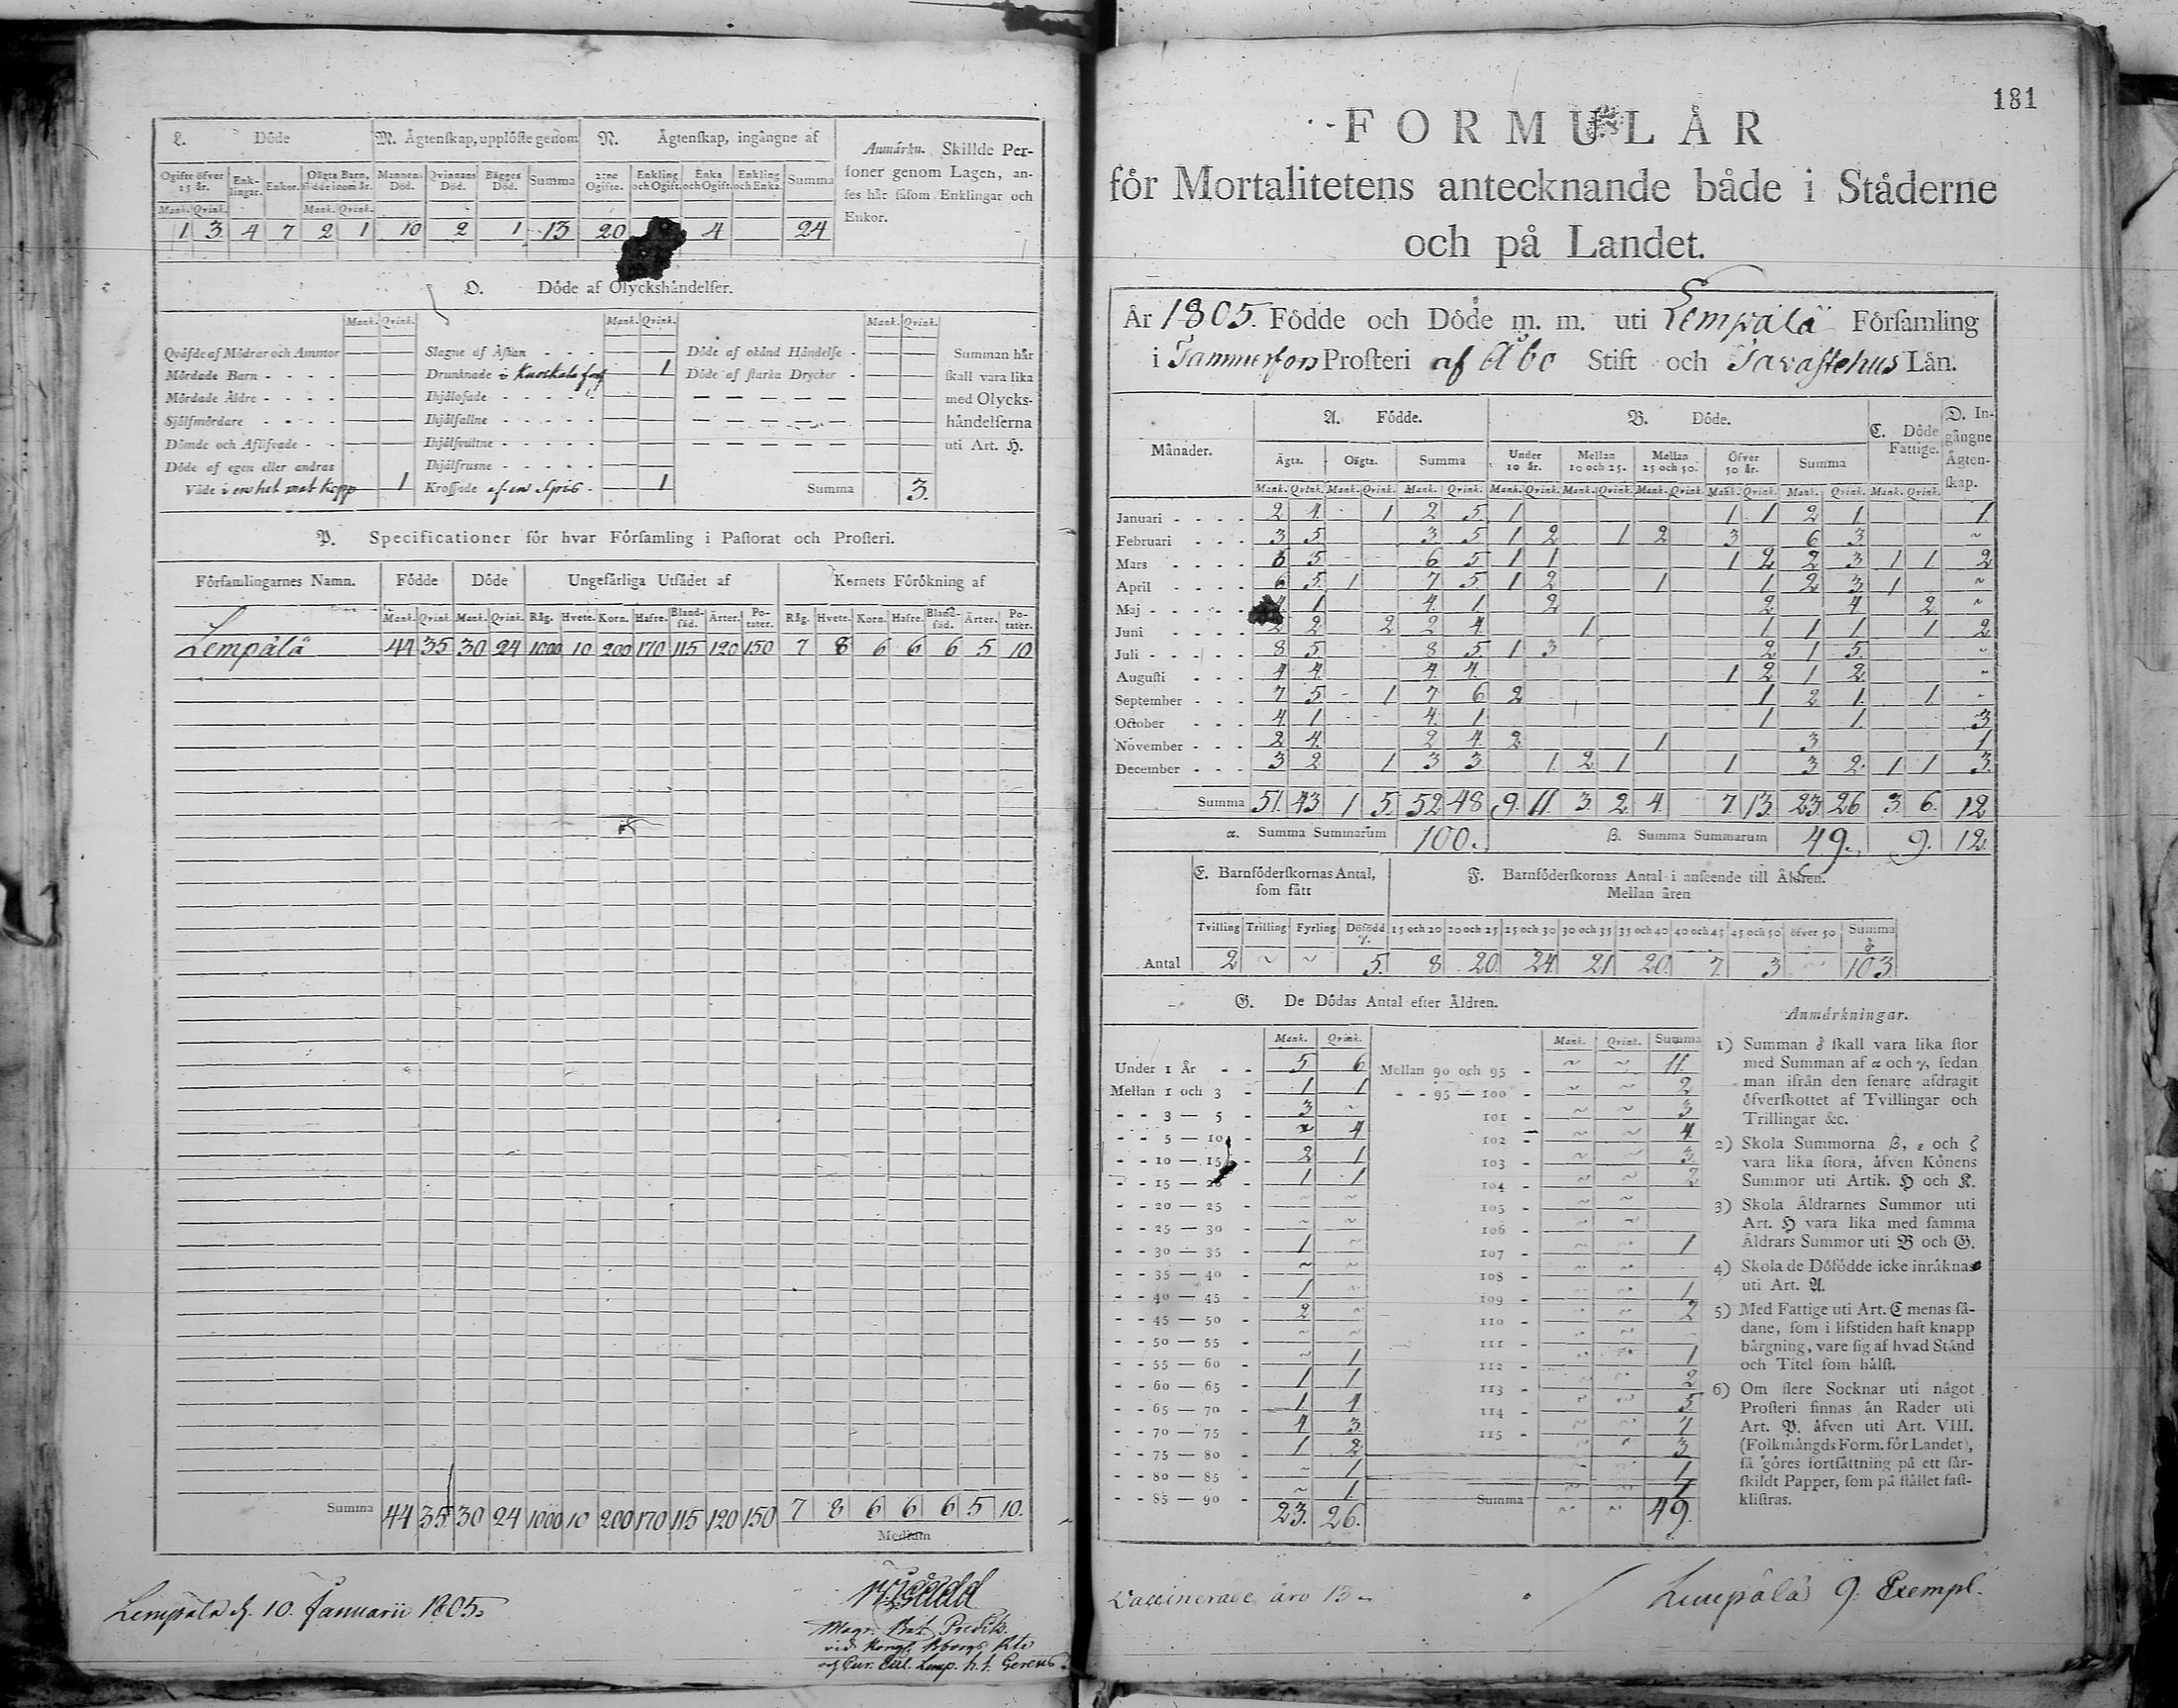 L. Döde
M. Ägtenskap, upplöste genom
N. Ägtenskap, ingångne af
Ogifte öfver 15 år. Enk-lingar. Enkor. Oägta Barn, födde inom år. Mannens Död. Qvinnans Död. Bägges Död. Summa 2:ne Ogifte. Enkling och Ogift. Enka och Ogift. Enkling och Enka. Summa
Mank. Qvink. Mank. Qvink.
1 3 4 7 2 1 10 2 1 13 20 4 24
Anmärkn. Skillde Per-
soner genom Lagen, an-
ses här såsom Enklingar och
Enkor.
O. Döde af Olyckshändelser.
Mank. Qvink. Mank. Qvink. Mank. Qvink.
Qväfde af Mödrar och Ammor
Mördade Barn
Mördade Äldre
Sjelfmördare
Dömde och Aflifvade
Döde af egen eller andras
Våde 1
Slagne af Åskan
Drunknade 1
Ihjälfallne
Ihjälfrusne
Krossade af en Spis 1
Döde af okänd Händelse
Döde af starka Drycker
Summa 3.
Summan här
skall vara lika
med Olycks-
händelserna
uti Art. H.
P. Specificationer för hvar Församling i Pastorat och Prosteri.
Församlingarnes Namn. Födde Döde Ungefärliga Utsädet af Kornets Förökning af
Mank. Qvink. Mank. Qvink. Råg. Hvete. Korn. Hafre. Bland-säd. Ärter. Po-tater. Råg. Hvete. Korn. Hafre. Bland-säd. Ärter. Po-tater.
Lempälä 44 35 30 24 1000 10 200 170 115 120 150 7 8 6 6 6 5 10
Summa 44 35 30 24 1000 10 200 170 115 120 150 7 8 6 6 6 5 10.
Medium
Lempälä d. 10. Januarii 1805.
181
FORMULÄR
för Mortalitetens antecknande både i Städerne
och på Landet.
År 1805. Födde och Döde m. m. uti Lempälä Församling
i Tammerfors Prosteri af Åbo Stift och Tavastehus Län.
Månader. A. Födde. B. Döde. C. Döde Fattige. D. In-gångne Ägten-skap.
Ägta. Oägta. Summa Under 10 år. Mellan 10 och 25. Mellan 25 och 50. Öfver 50 år. Summa
Mank. Qvink. Mank. Qvink. Mank. Qvink. Mank. Qvink. Mank. Qvink. Mank. Qvink. Mank. Qvink. Mank. Qvink. Mank. Qvink.
Januari 2 4 1 2 5 1 1 1 2 1 1
Februari 3 5 3 5 1 2 1 2 3 6 3 ~
Mars 6 5 6 5 1 1 1 2 2 3 1 1 2
April 6 5 1 7 5 1 2 1 1 2 3 1 ~
Maj 1 4 1 2 2 4 2 ~
Juni 2 2 2 2 4 1 1 1 1 1 2
Juli 8 5 8 5 1 3 2 1 5 ~
Augusti 4 4 4 4 1 2 1 2 ~
September 7 5 1 7 6 2 1 2 1 1 ~
October 4 1 4 1 1 1 3
November 2 4 2 4 2 1 3 1
December 3 2 1 3 3 1 2 1 1 3 2 1 1 3
Summa 51 43 1 5 52 48 9 11 3 2 4 7 13 23 26 3 6 12
α. Summa Summarum 100. β. Summa Summarum 49. 9. 12.
E. Barnföderskornas Antal, som fått
F. Barnföderskornas Antal i anseende till Åldren.
Mellan åren
Tvilling Trilling Fyrling Dödfödd γ. 15 och 20 20 och 25 25 och 30 30 och 35 35 och 40 40 och 45 45 och 50 öfver 50 Summa δ
Antal 2 ~ ~ 5. 8 20 24 21 20 7 3 ~ 103
G. De Dödas Antal efter Åldren.
Mank. Qvink. Mank. Qvink. Summa
Under 1 År 5 6 Mellan 90 och 95 ~ ~ 11
Mellan 1 och 3 1 1 95 — 100 ~ ~ 2
3 — 5 3 ~ 101 ~ ~ 3
5 — 10 ~ 4 102 ~ ~ 4
10 — 15 2 1 103 ~ ~ 3
15 — 20 1 1 104 ~ ~ 2
20 — 25 ~ ~ 105 ~ ~
25 — 30 ~ ~ 106 ~ ~
30 — 35 1 ~ 107 ~ ~ 1
35 — 40 ~ ~ 108
40 — 45 1 ~ 109 ~ ~ 1
45 — 50 2 ~ 110 ~ ~ 2
50 — 55 ~ ~ 111
55 — 60 ~ 1 112 ~ ~ 1
60 — 65 1 1 113 ~ ~ 2
65 — 70 1 4 114 ~ ~ 5
70 — 75 4 3 115 ~ ~ 7
75 — 80 1 2 3
80 — 85 ~ 1 1
85 — 90 ~ 1 1
23. 26. Summa ~ ~ 49.
Anmärkningar.
1) Summan δ skall vara lika stor
med Summan af α och γ, sedan
man ifrån den senare afdragit
öfverskottet af Tvillingar och
Trillingar &c.
2) Skola Summorna β, ε och ζ
vara lika stora, äfven Könens
Summor uti Artik. H och K.
3) Skola Åldrarnes Summor uti
Art. H vara lika med samma
Åldrars Summor uti B och G.
4) Skola de Dödfödde icke inräknas
uti Art. A.
5) Med Fattige uti Art. C menas så-
dane, som i lifstiden haft knapp
bärgning, vare sig af hvad Stånd
och Titel som hälst.
6) Om flere Socknar uti något
Prosteri finnas än Rader uti
Art. P. äfven uti Art. VIII.
(Folkmängds Form. för Landet),
så göres fortsättning på ett sär-
skildt Papper, som på stället fast-
klistras.
Vaccinerade äro 13
Lempälä 9. Exempl.